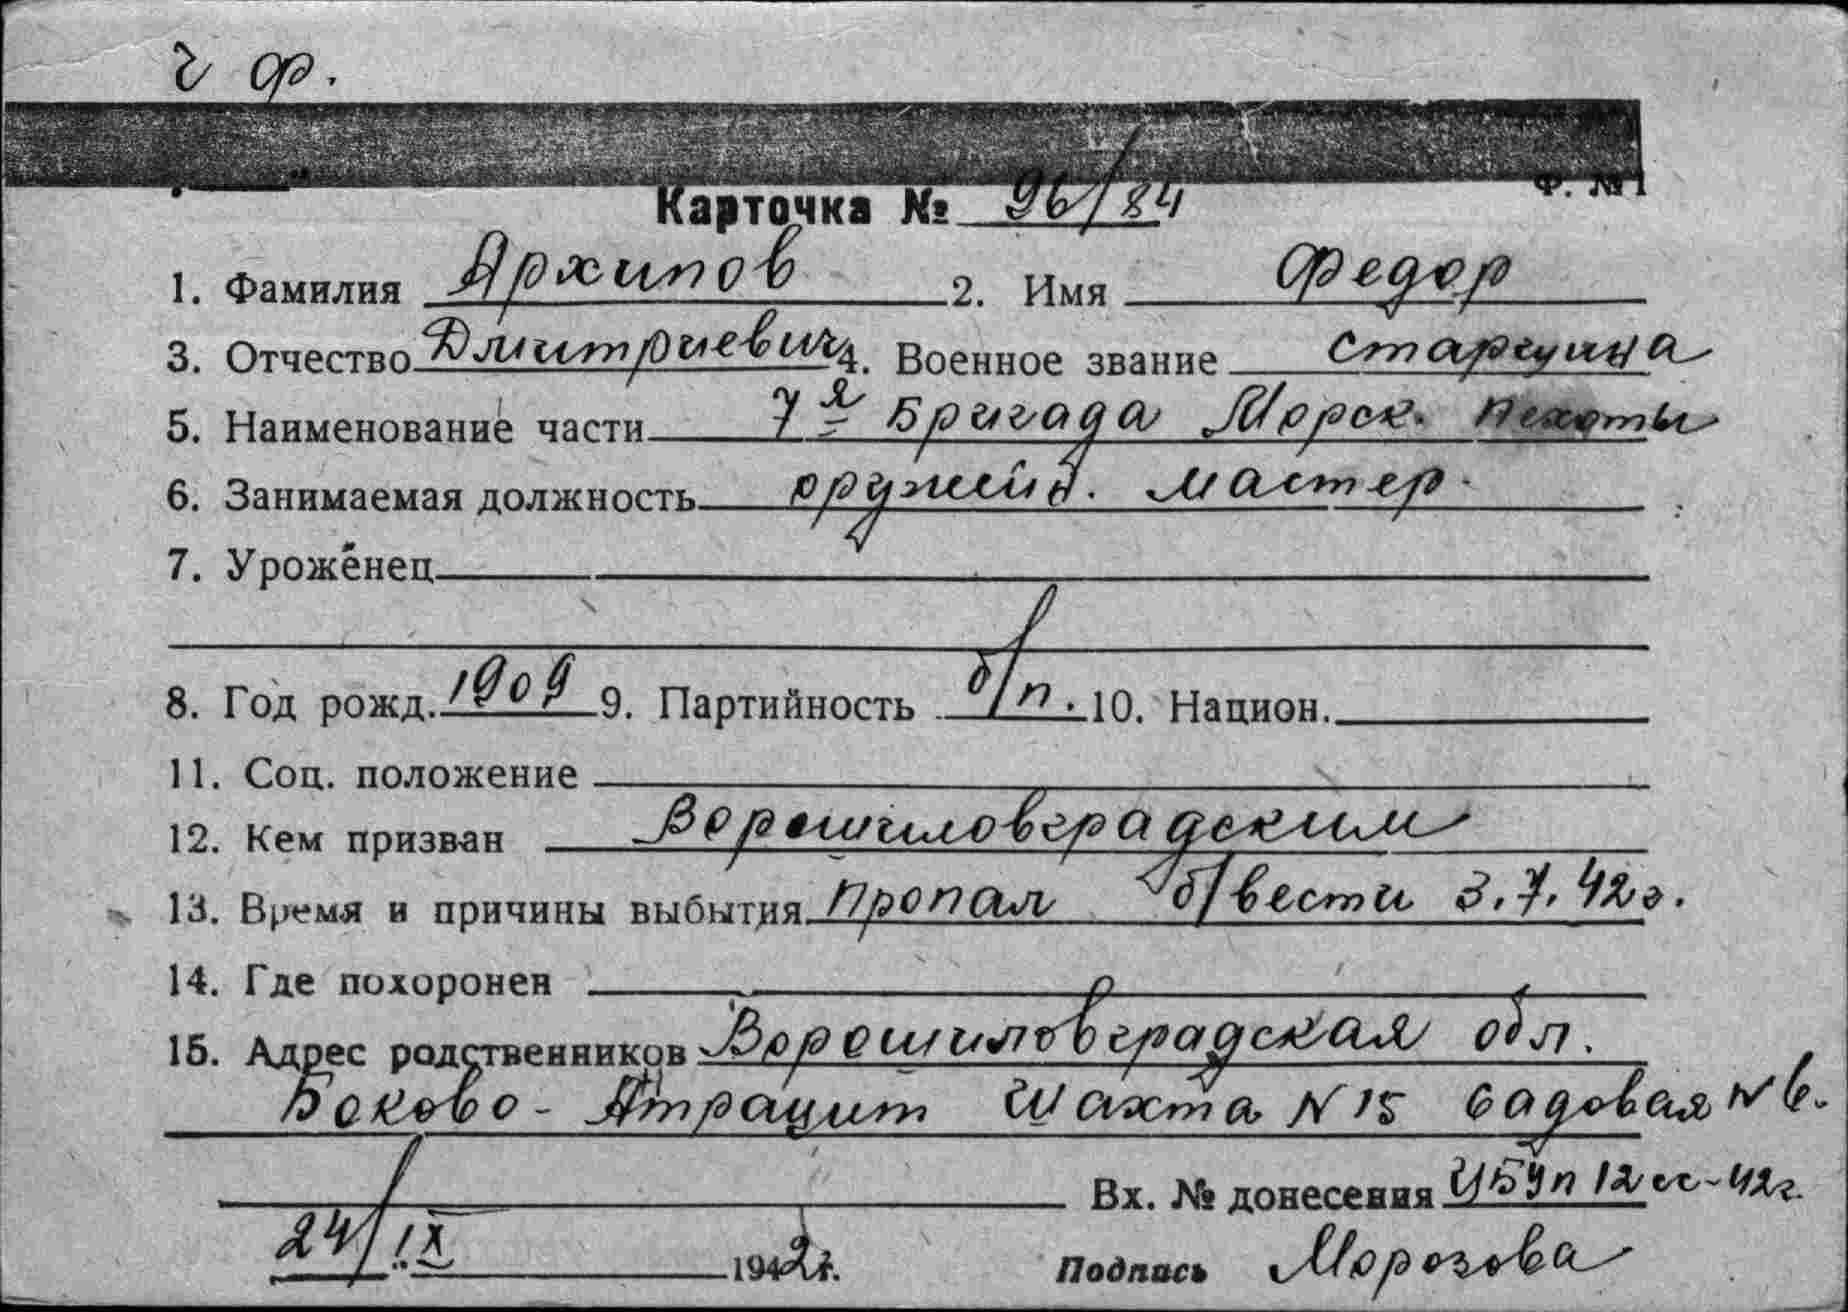 ч ф.
Ф. № 1
Карточка № 96/84
1. Фамилия Архипов 2. Имя Федор
3. Отчество Дмитриевич 4. Военное звание старшина
5. Наименование части 7я Бригада Морск. пехоты
6. Занимаемая должность оружейн. мастер.
7. Уроженец
8. Год рожд. 1909 9. Партийность б/п. 10. Национ.
11. Соц. положение
12. Кем призван Ворошиловградским
13. Время и причины выбытия пропал б/вести 3.7.42г.
14. Где похоронен
15. Адрес родственников Ворошиловградская обл.
Боково-Атрацит Шахта N 15 Садовая N 6.
Вх. № донесения 12сс-42г.
24/IX 1942г. Подпись Морозова